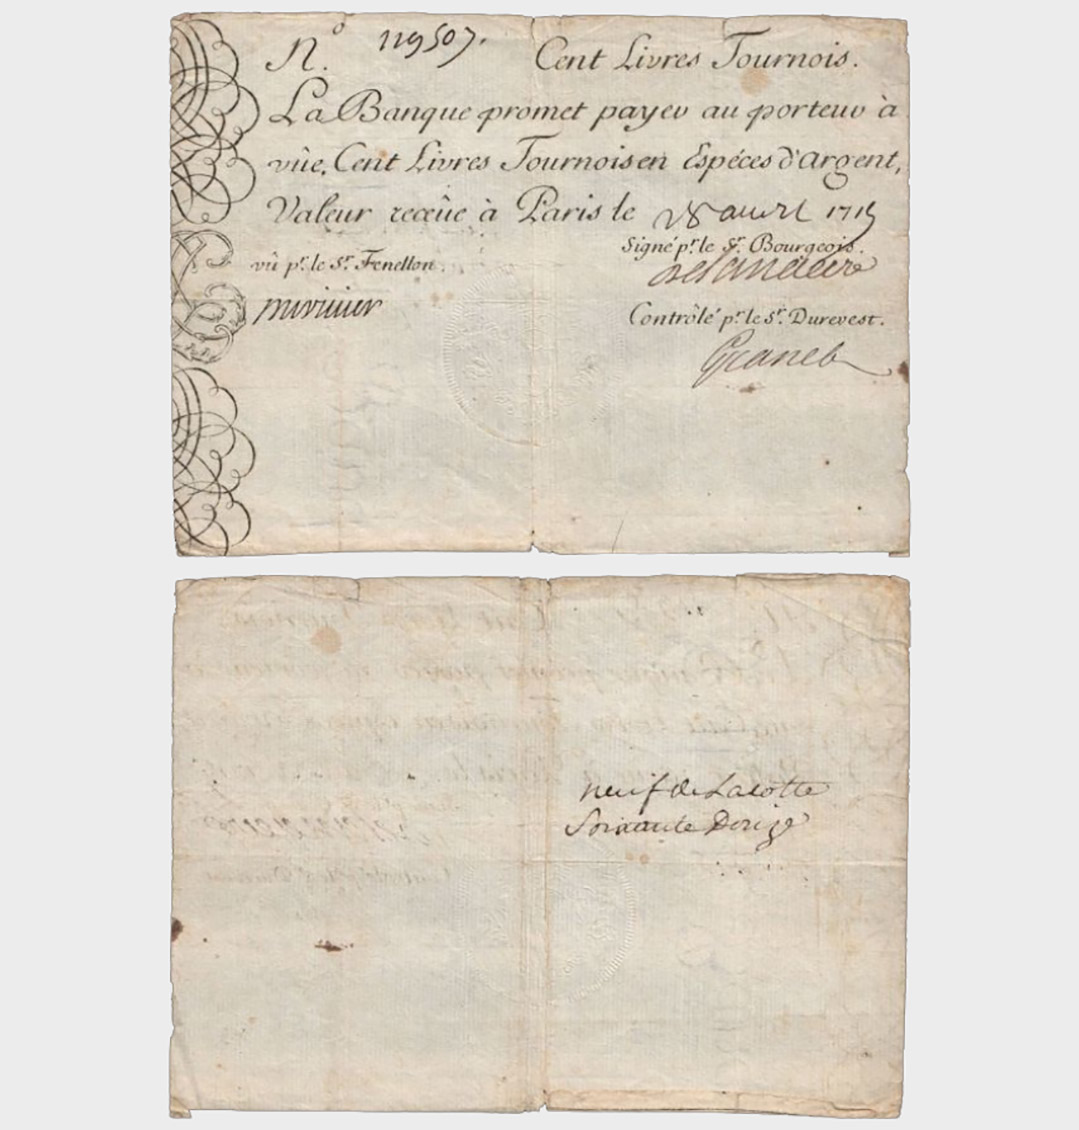 N.º 119507. Cent Livres Tournois.
La Banque promet payer au porteur à
vûe, Cent Livres Tournois en Espéces d'Argent,
Valeur receüe à Paris le 18 avril 1719
Signé pr. le Sr. Bourgeois.
vû pr. le Sr. Fenellon.
Delanauze
Contrôlé pr. le Sr. Durevest.
Granet
neuf de Lacotte
Soixante Douze